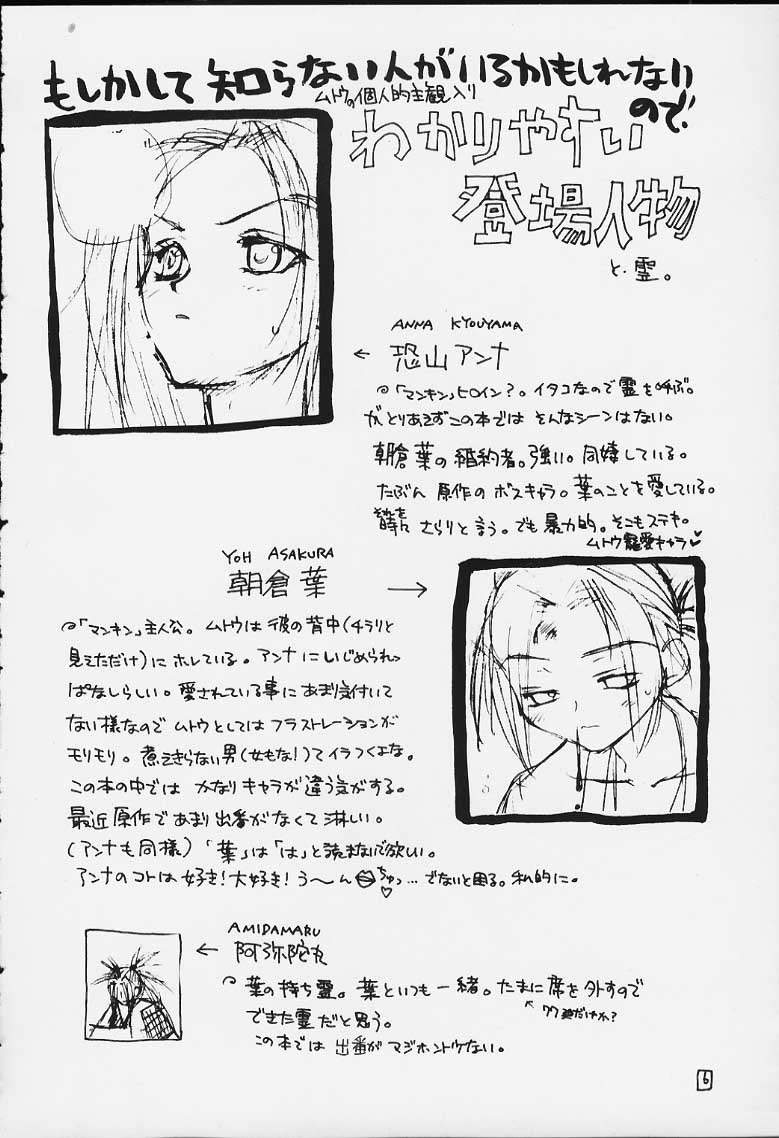 もしかして知らない人がいるかもしれない
ので
ムトウの個人的主観入り
わかりやすい
登場人物
と・霊。
ANNA KYOUYAMA
← 恐山アンナ
「マンキン」ヒロイン?。イタコなので霊を呼ぶ。
がとりあえずこの本では そんなシーンはない。
朝倉葉の婚約者。強い。同棲している。
たぶん 原作の ボスキャラ。葉のことを愛している。
それを
時に さらりと言う。でも暴力的。そこもステキ。
ムトウ寵愛キャラ♥
YOH ASAKURA
朝倉 葉 →
「マンキン」主人公。ムトウは彼の背中(チラリと
見えただけ)にホレている。アンナにいじめられっ
ぱなしらしい。愛されている事にあまり気付いて
ない様なので ムトウとしてはフラストレーションが
モリモリ。煮えきらない男(女もな!)てイラつくよな。
この本の中では かなりキャラが違う気がする。
最近原作であまり出番がなくて淋しい。
(アンナも同様)「葉」は「は」と読まないで欲しい。
アンナのコトは好き!大好き!う〜ん ちゅっ♡…でないと困る。私的に。
AMIDAMARU
← 阿弥陀丸
葉の持ち霊。葉といつも一緒。たまに席を外すので
できた霊だと思う。
この本では 出番がマジホントウない。
6